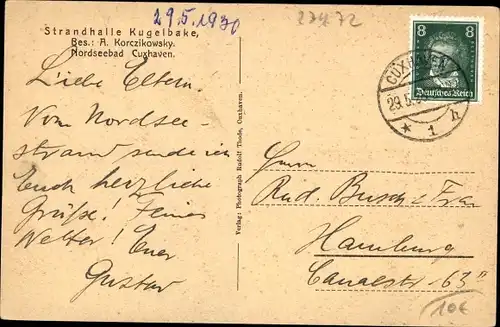 29.5.1930
27472
Strandhalle Kugelbake,
Bes.: A. Korczikowsky.
Nordseebad Cuxhaven.
Liebe Eltern.
Vom Nordsee-
strand sende ich
Euch herzliche
Grüße! Feines
Wetter! Euer
Gustav
Verlag: Photograph Rudolf Thode, Cuxhaven.
8 8
Deutsches Reich
CUXHAVEN
29.5.
* 1 h
Herrn
Rud. Busch & Frau
Hamburg
Canalstr. 63
10€